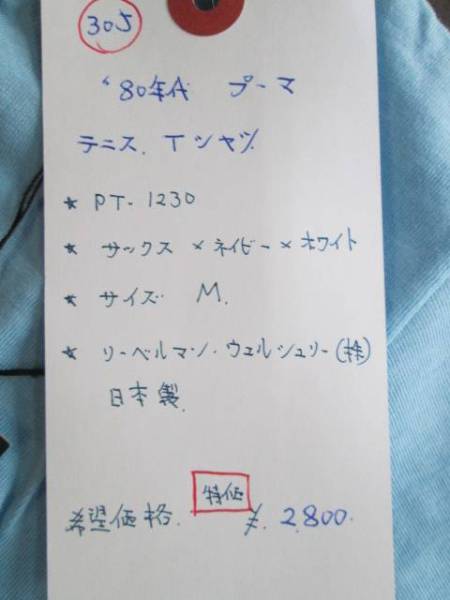 305
'80年代 プーマ
テニス. Tシャツ
★ PT-1230
★ サックス × ネイビー × ホワイト
★ サイズ M.
★ リーベルマン・ウェルシュリー(株)
日本製.
特価
希望価格. ¥. 2,800.